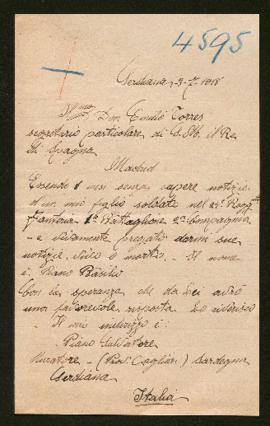 4595
Serdiana, 3-7-1918
Ill.mo Don Emilio Torres
segretario particolare di S. M. il Re
di Spagna
Madrid
Essendo mesi senza sapere notizie
di un mio figlio soldato nel Regg.
fanteria 1º Battaglione 2ª Compagnia
è vivamente pregato darmi sue
notizie vivo o morto. Il nome
è Piano
Con la speranza che da Lei avrò
una favorevole risposta La
Il mio indirizzo è
Piano Salvatore
Muratore - (Prov. Cagliari) Sardegna
Serdiana
Italia